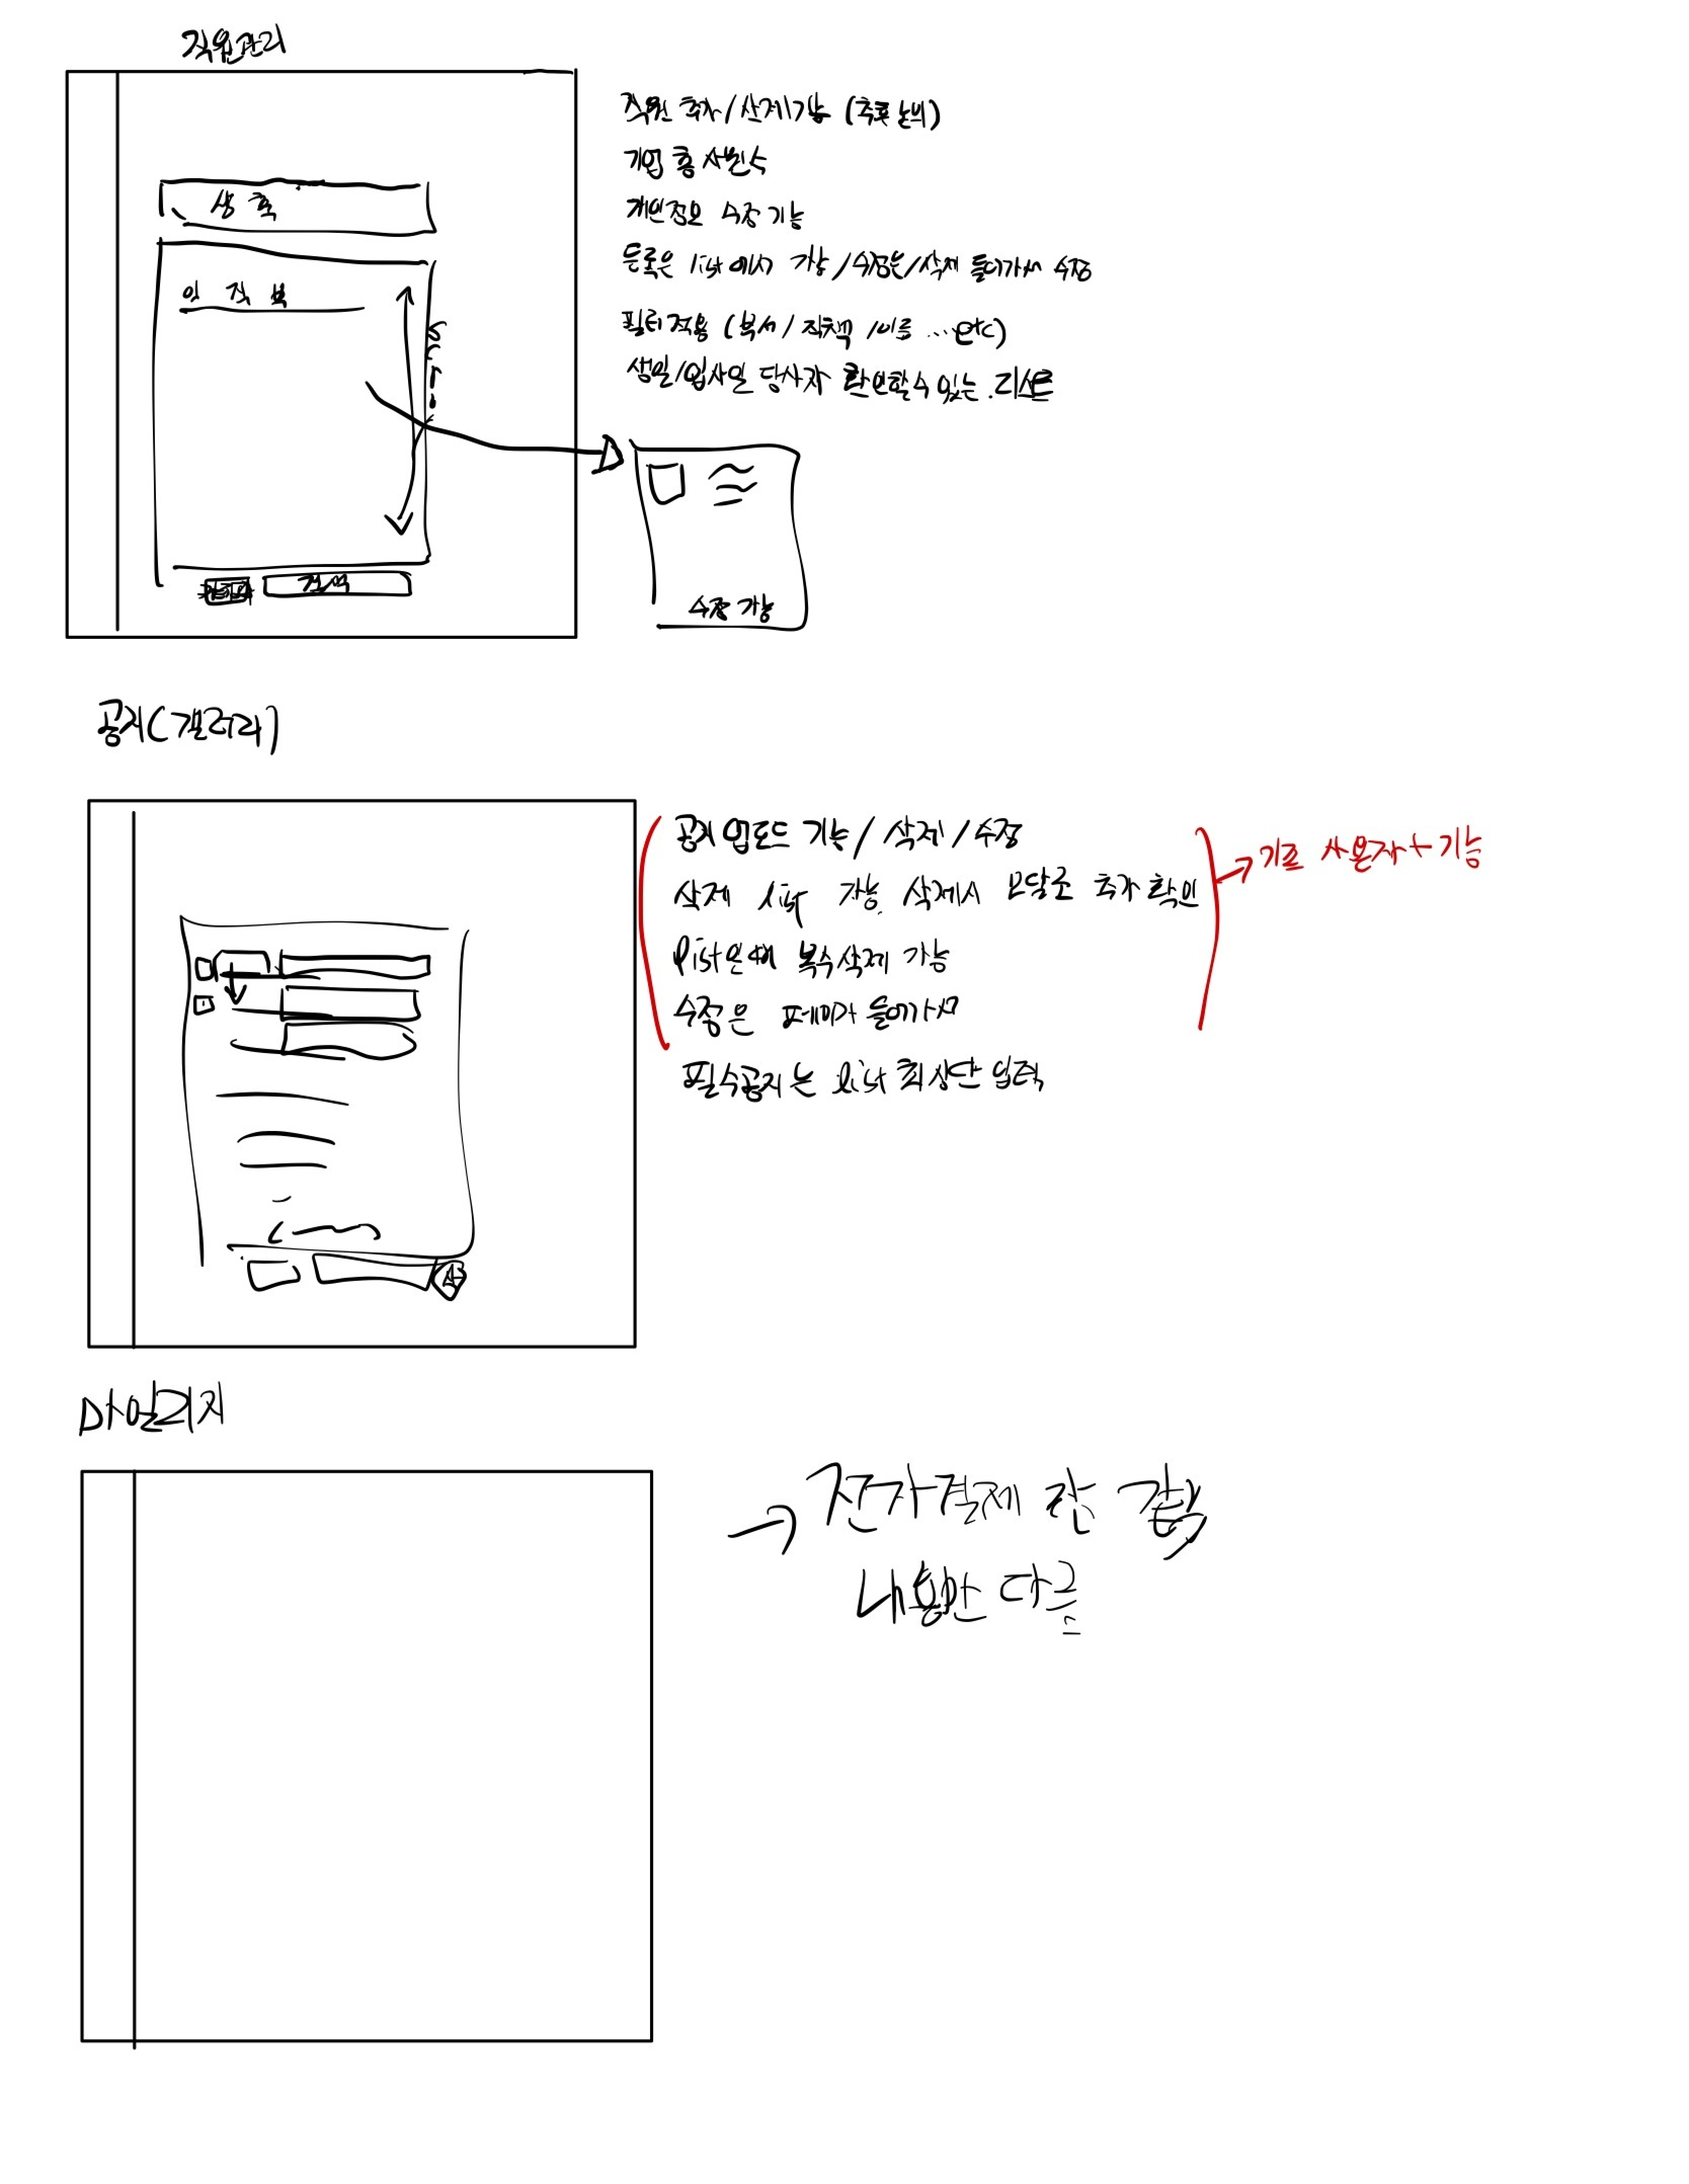 직원관리
직원 추가/삭제기능 (추후 논의)
기업 총 사원수
개인정보 수정 기능
등록은 list에서 가능/수정은/삭제 들어가서 수정
필터적용 (부서/직책/이름 ...etc)
생일/입사일 당사자 확인할수 있는 리스트
생 축
이 직 부
검색
수정 가능
공지(갤러리)
공지업로드 기능/삭제/수정
삭제 list 가능 삭제시 모달로 추가 확인
list안에 복수삭제 가능
수정은 페이지 들어가서
필수공지는 list 최상단 입력
기존 사용자+기능
마일리지
→ 전자결제 랑 같음
내용만 다름